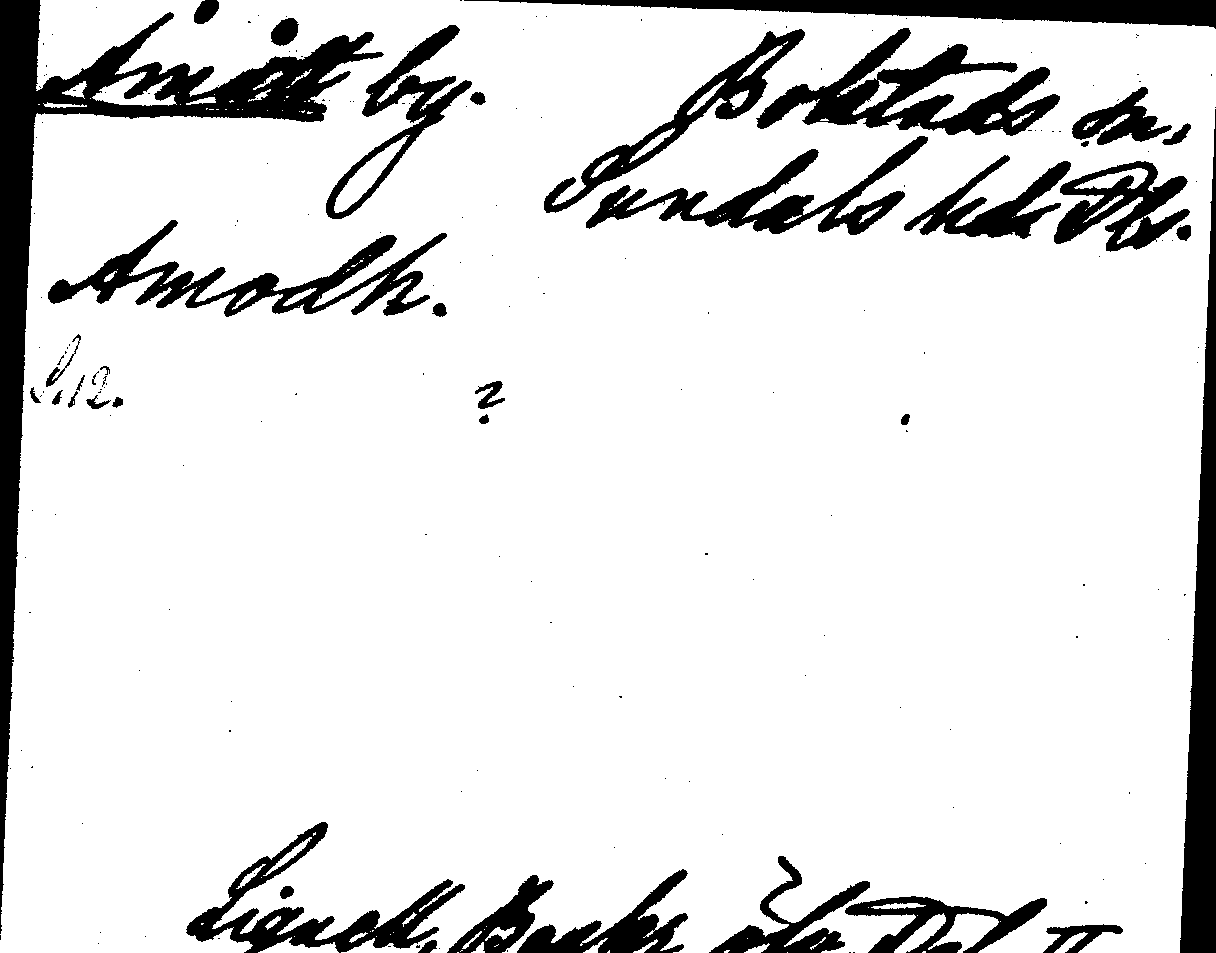 Åmått by. Bolstads sn,
Sundals hd. Dls.
Amodh.
S. 12. ?
Lignell, Beskr. öfv. Dal II